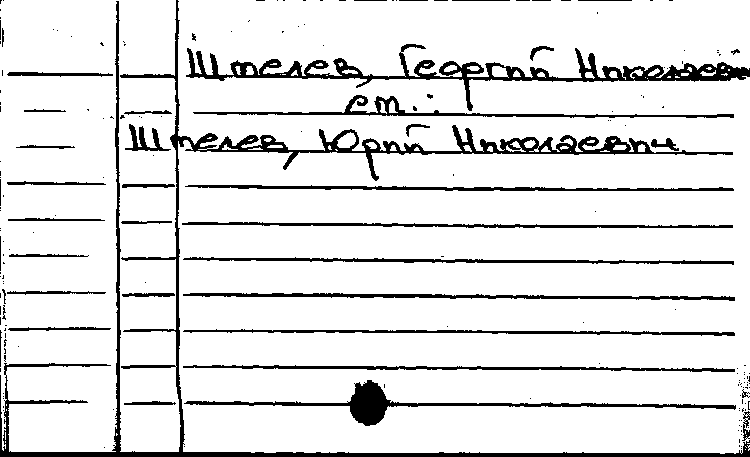 Штелев, Георгий Николаевич
см.:
Штелев, Юрий Николаевич.